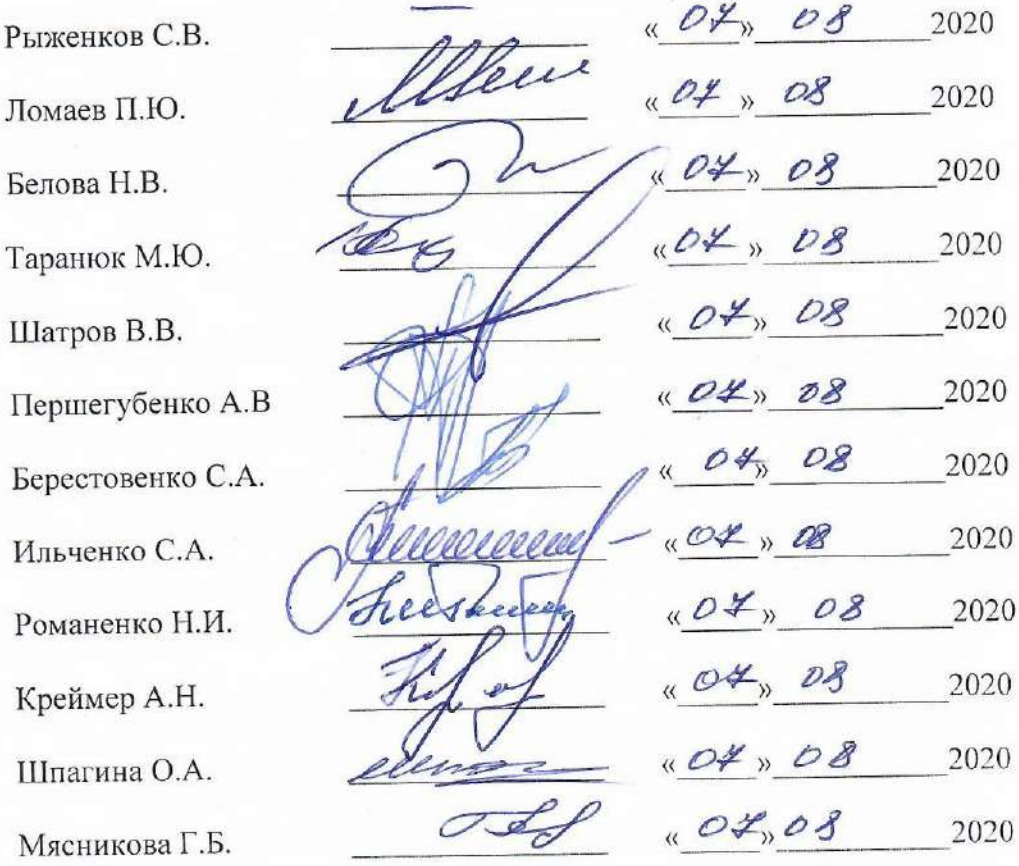 Рыженков С.В. « 07 » 08 2020
Ломаев П.Ю. « 07 » 08 2020
Белова Н.В. « 07 » 08 2020
Таранюк М.Ю. « 07 » 08 2020
Шатров В.В. « 07 » 08 2020
Першегубенко А.В « 07 » 08 2020
Берестовенко С.А. « 07 » 08 2020
Ильченко С.А. « 07 » 08 2020
Романенко Н.И. « 07 » 08 2020
Креймер А.Н. « 07 » 08 2020
Шпагина О.А. « 07 » 08 2020
Мясникова Г.Б. « 07 » 08 2020